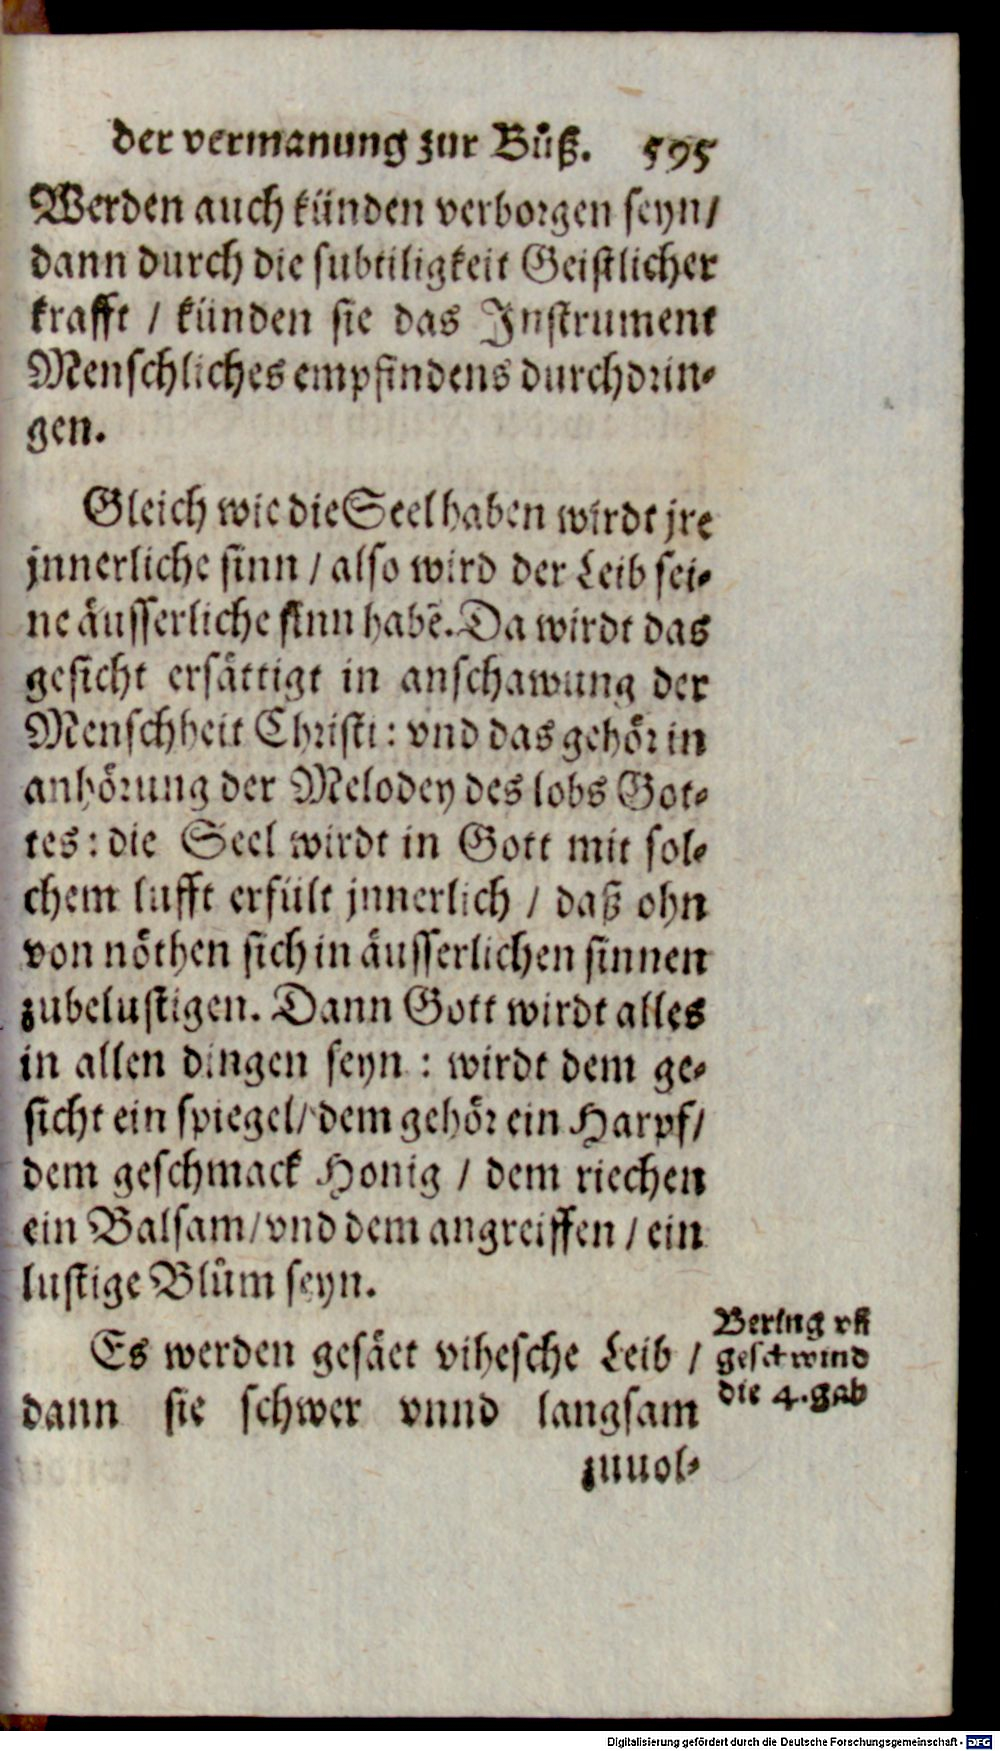 der vermanung zur Bůß. 595
Werden auch künden verborgen seyn/
dann durch die subtiligkeit Geistlicher
krafft / künden sie das Instrument
Menschliches empfindens durchdrin-
gen.
Gleich wie die Seel haben wirdt jre
jnnerliche sinn / also wird der Leib sei-
ne äusserliche sinn habẽ. Da wirdt das
gesicht ersättigt in anschawung der
Menschheit Christi: vnd das gehör in
anhörung der Melodey des lobs Got-
tes: die Seel wirdt in Gott mit sol-
chem lufft erfült jnnerlich / daß ohn
von nöthen sich in äusserlichen sinnen
zubelustigen. Dann Gott wirdt alles
in allen dingen seyn : wirdt dem ge-
sicht ein spiegel/ dem gehör ein Harpf/
dem geschmack Honig / dem riechen
ein Balsam/ vnd dem angreiffen / ein
lustige Blům seyn.
Es werden gesäet vihesche Leib /
dann sie schwer vnnd langsam
zuuol-
geschwind
die 4. gab
Digitalisierung gefördert durch die Deutsche Forschungsgemeinschaft - DFG